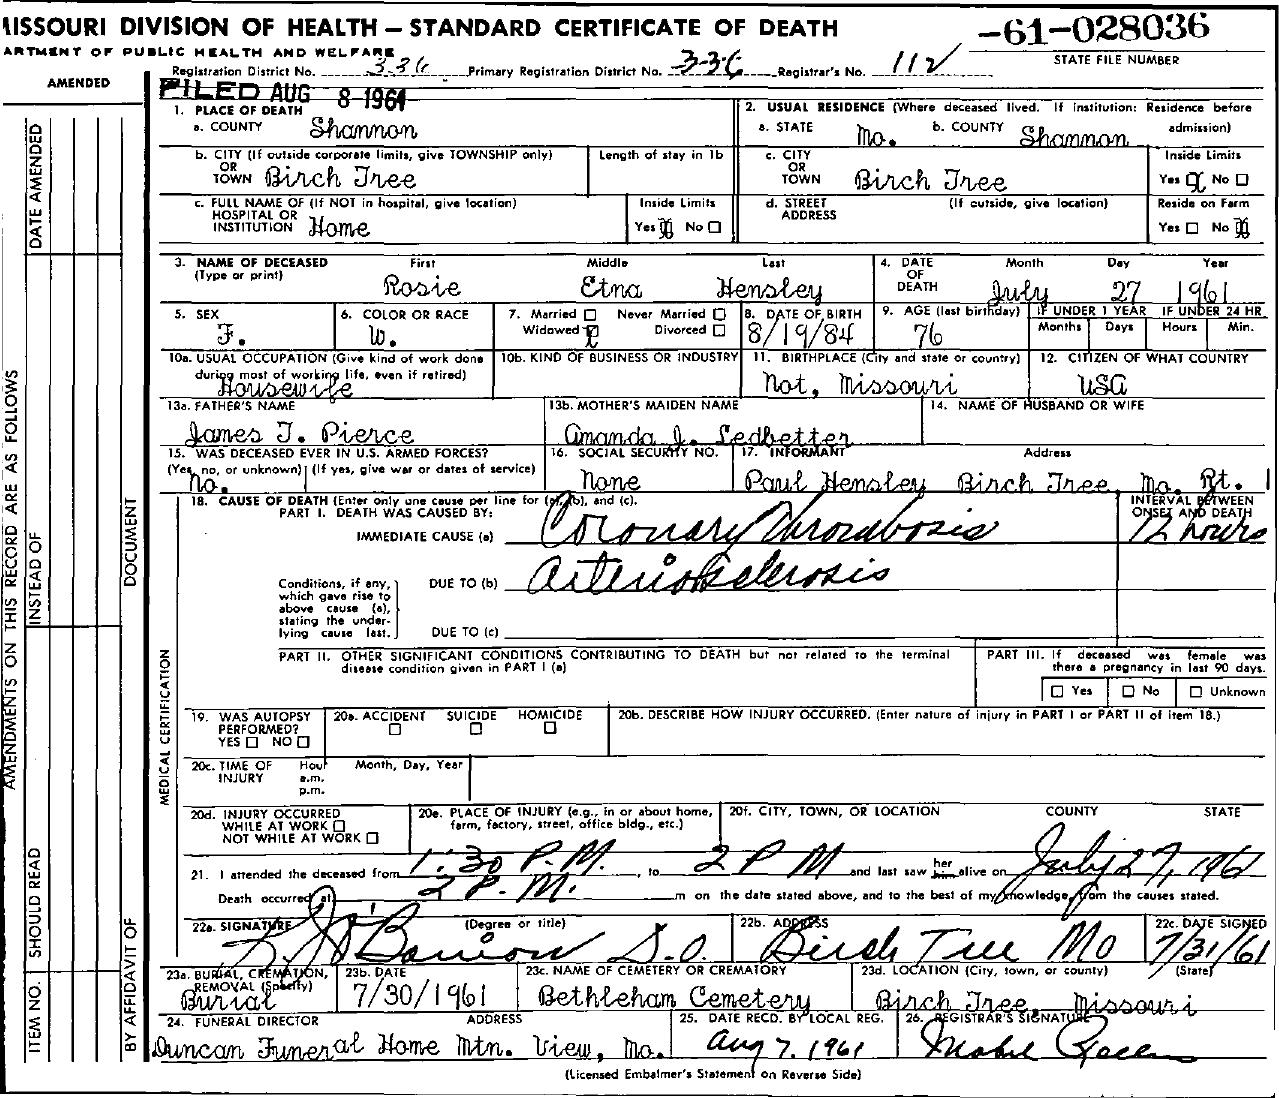 MISSOURI DIVISION OF HEALTH — STANDARD CERTIFICATE OF DEATH
-61-028036
ARTMENT OF PUBLIC HEALTH AND WELFARE
STATE FILE NUMBER
Registration District No. 336 Primary Registration District No. 336 Registrar's No. 112
AMENDED
FILED AUG 8 1961
1. PLACE OF DEATH
a. COUNTY Shannon
2. USUAL RESIDENCE (Where deceased lived. If institution: Residence before admission)
a. STATE Mo. b. COUNTY Shannon
b. CITY (If outside corporate limits, give TOWNSHIP only) OR TOWN Birch Tree
Length of stay in 1b
c. CITY OR TOWN Birch Tree
Inside Limits
Yes X No ☐
c. FULL NAME OF (If NOT in hospital, give location) HOSPITAL OR INSTITUTION Home
Inside Limits
Yes X No ☐
d. STREET ADDRESS (If outside, give location)
Reside on Farm
Yes ☐ No X
3. NAME OF DECEASED (Type or print)
First Middle Last
Rosie Etna Hensley
4. DATE OF DEATH
Month Day Year
July 27 1961
5. SEX F.
6. COLOR OR RACE W.
7. Married ☐ Never Married ☐
Widowed X Divorced ☐
8. DATE OF BIRTH 8/19/84
9. AGE (last birthday) 76
IF UNDER 1 YEAR IF UNDER 24 HR.
Months Days Hours Min.
10a. USUAL OCCUPATION (Give kind of work done during most of working life, even if retired)
Housewife
10b. KIND OF BUSINESS OR INDUSTRY
11. BIRTHPLACE (City and state or country)
Not, Missouri
12. CITIZEN OF WHAT COUNTRY
USA
13a. FATHER'S NAME
James T. Pierce
13b. MOTHER'S MAIDEN NAME
Amanda J. Ledbetter
14. NAME OF HUSBAND OR WIFE
15. WAS DECEASED EVER IN U.S. ARMED FORCES?
(Yes, no, or unknown) (If yes, give war or dates of service)
No.
16. SOCIAL SECURITY NO.
None
17. INFORMANT Address
Paul Hensley Birch Tree, Mo. Rt. 1
18. CAUSE OF DEATH (Enter only one cause per line for (a), (b), and (c).
PART I. DEATH WAS CAUSED BY:
INTERVAL BETWEEN ONSET AND DEATH
IMMEDIATE CAUSE (a) Coronary Thrombosis
12 hours
Conditions, if any, which gave rise to above cause (a), stating the underlying cause last.
DUE TO (b) Arteriosclerosis
DUE TO (c)
PART II. OTHER SIGNIFICANT CONDITIONS CONTRIBUTING TO DEATH but not related to the terminal disease condition given in PART I (a)
PART III. If deceased was female was there a pregnancy in last 90 days.
☐ Yes ☐ No ☐ Unknown
19. WAS AUTOPSY PERFORMED?
YES ☐ NO ☐
20a. ACCIDENT SUICIDE HOMICIDE
☐ ☐ ☐
20b. DESCRIBE HOW INJURY OCCURRED. (Enter nature of injury in PART I or PART II of item 18.)
20c. TIME OF INJURY Hour Month, Day, Year
a.m.
p.m.
20d. INJURY OCCURRED
WHILE AT WORK ☐
NOT WHILE AT WORK ☐
20e. PLACE OF INJURY (e.g., in or about home, farm, factory, street, office bldg., etc.)
20f. CITY, TOWN, OR LOCATION COUNTY STATE
21. I attended the deceased from 1:30 P.M., to 2 P M and last saw her him alive on July 27, 1961
Death occurred at 2 P.M. m on the date stated above, and to the best of my knowledge, from the causes stated.
22a. SIGNATURE (Degree or title)
D.O.
22b. ADDRESS
Birch Tree Mo
22c. DATE SIGNED
7/31/61
23a. BURIAL, CREMATION, REMOVAL (Specify)
Burial
23b. DATE
7/30/1961
23c. NAME OF CEMETERY OR CREMATORY
Bethleham Cemetery
23d. LOCATION (City, town, or county) (State)
Birch Tree, Missouri
24. FUNERAL DIRECTOR ADDRESS
Duncan Funeral Home Mtn. View, Mo.
25. DATE RECD. BY LOCAL REG.
Aug 7, 1961
26. REGISTRAR'S SIGNATURE
Mabel
(Licensed Embalmer's Statement on Reverse Side)
AMENDMENTS ON THIS RECORD ARE AS FOLLOWS
DATE AMENDED
INSTEAD OF
DOCUMENT
SHOULD READ
ITEM NO.
BY AFFIDAVIT OF
MEDICAL CERTIFICATION